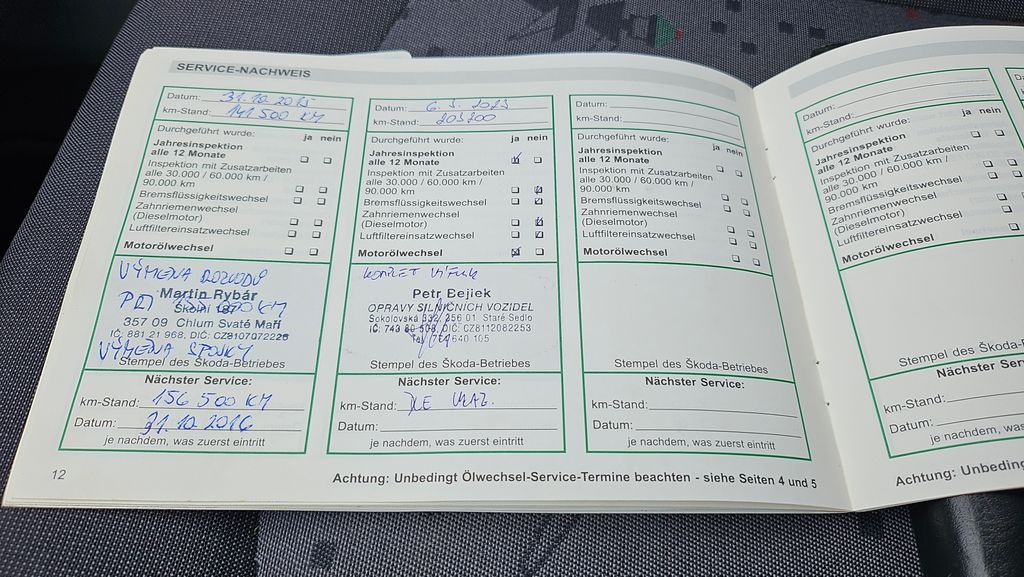 SERVICE-NACHWEIS
Datum: 31.10.2015
km-Stand: 141 500 KM
Durchgeführt wurde: ja nein
Jahresinspektion
alle 12 Monate
Inspektion mit Zusatzarbeiten
alle 30.000 / 60.000 km /
90.000 km
Bremsflüssigkeitswechsel
Zahnriemenwechsel
(Dieselmotor)
Luftfiltereinsatzwechsel
Motorölwechsel
VÝMENA ROZVODŮ
PŘI KM
Martin Rybár
Školní 187
357 09 Chlum Svaté Maří
IČ: 881 21 968, DIČ: CZ8107072226
VÝMENA SPOJKY
Stempel des Škoda-Betriebes
Nächster Service:
km-Stand: 156 500 KM
Datum: 31.10 2016
je nachdem, was zuerst eintritt
Datum: 6. 3. 2023
km-Stand: 203200
Durchgeführt wurde: ja nein
Jahresinspektion
alle 12 Monate
Inspektion mit Zusatzarbeiten
alle 30.000 / 60.000 km /
90.000 km
Bremsflüssigkeitswechsel
Zahnriemenwechsel
(Dieselmotor)
Luftfiltereinsatzwechsel
Motorölwechsel
KOMPLET VÝFUK
Petr Bejlek
OPRAVY SILNIČNÍCH VOZIDEL
Sokolovská 332, 356 01 Staré Sedlo
IČ: 743 80 508, DIČ: CZ8112082253
Tel. 640 105
Stempel des Škoda-Betriebes
Nächster Service:
km-Stand: DLE UKAZ.
Datum:
je nachdem, was zuerst eintritt
Datum:
km-Stand:
Durchgeführt wurde: ja nein
Jahresinspektion
alle 12 Monate
Inspektion mit Zusatzarbeiten
alle 30.000 / 60.000 km /
90.000 km
Bremsflüssigkeitswechsel
Zahnriemenwechsel
(Dieselmotor)
Luftfiltereinsatzwechsel
Motorölwechsel
Stempel des Škoda-Betriebes
Nächster Service:
km-Stand:
Datum:
je nachdem, was zuerst eintritt
12
Achtung: Unbedingt Ölwechsel-Service-Termine beachten - siehe Seiten 4 und 5
Datum:
km-Stand:
Durchgeführt wurde: ja nein
Jahresinspektion
alle 12 Monate
Inspektion mit Zusatzarbeiten
alle 30.000 / 60.000 km /
90.000 km
Bremsflüssigkeitswechsel
Zahnriemenwechsel
(Dieselmotor)
Luftfiltereinsatzwechsel
Motorölwechsel
Stempel des Škoda-
Nächster Ser
km-Stand:
Datum:
je nachdem, was
Achtung: Unbeding